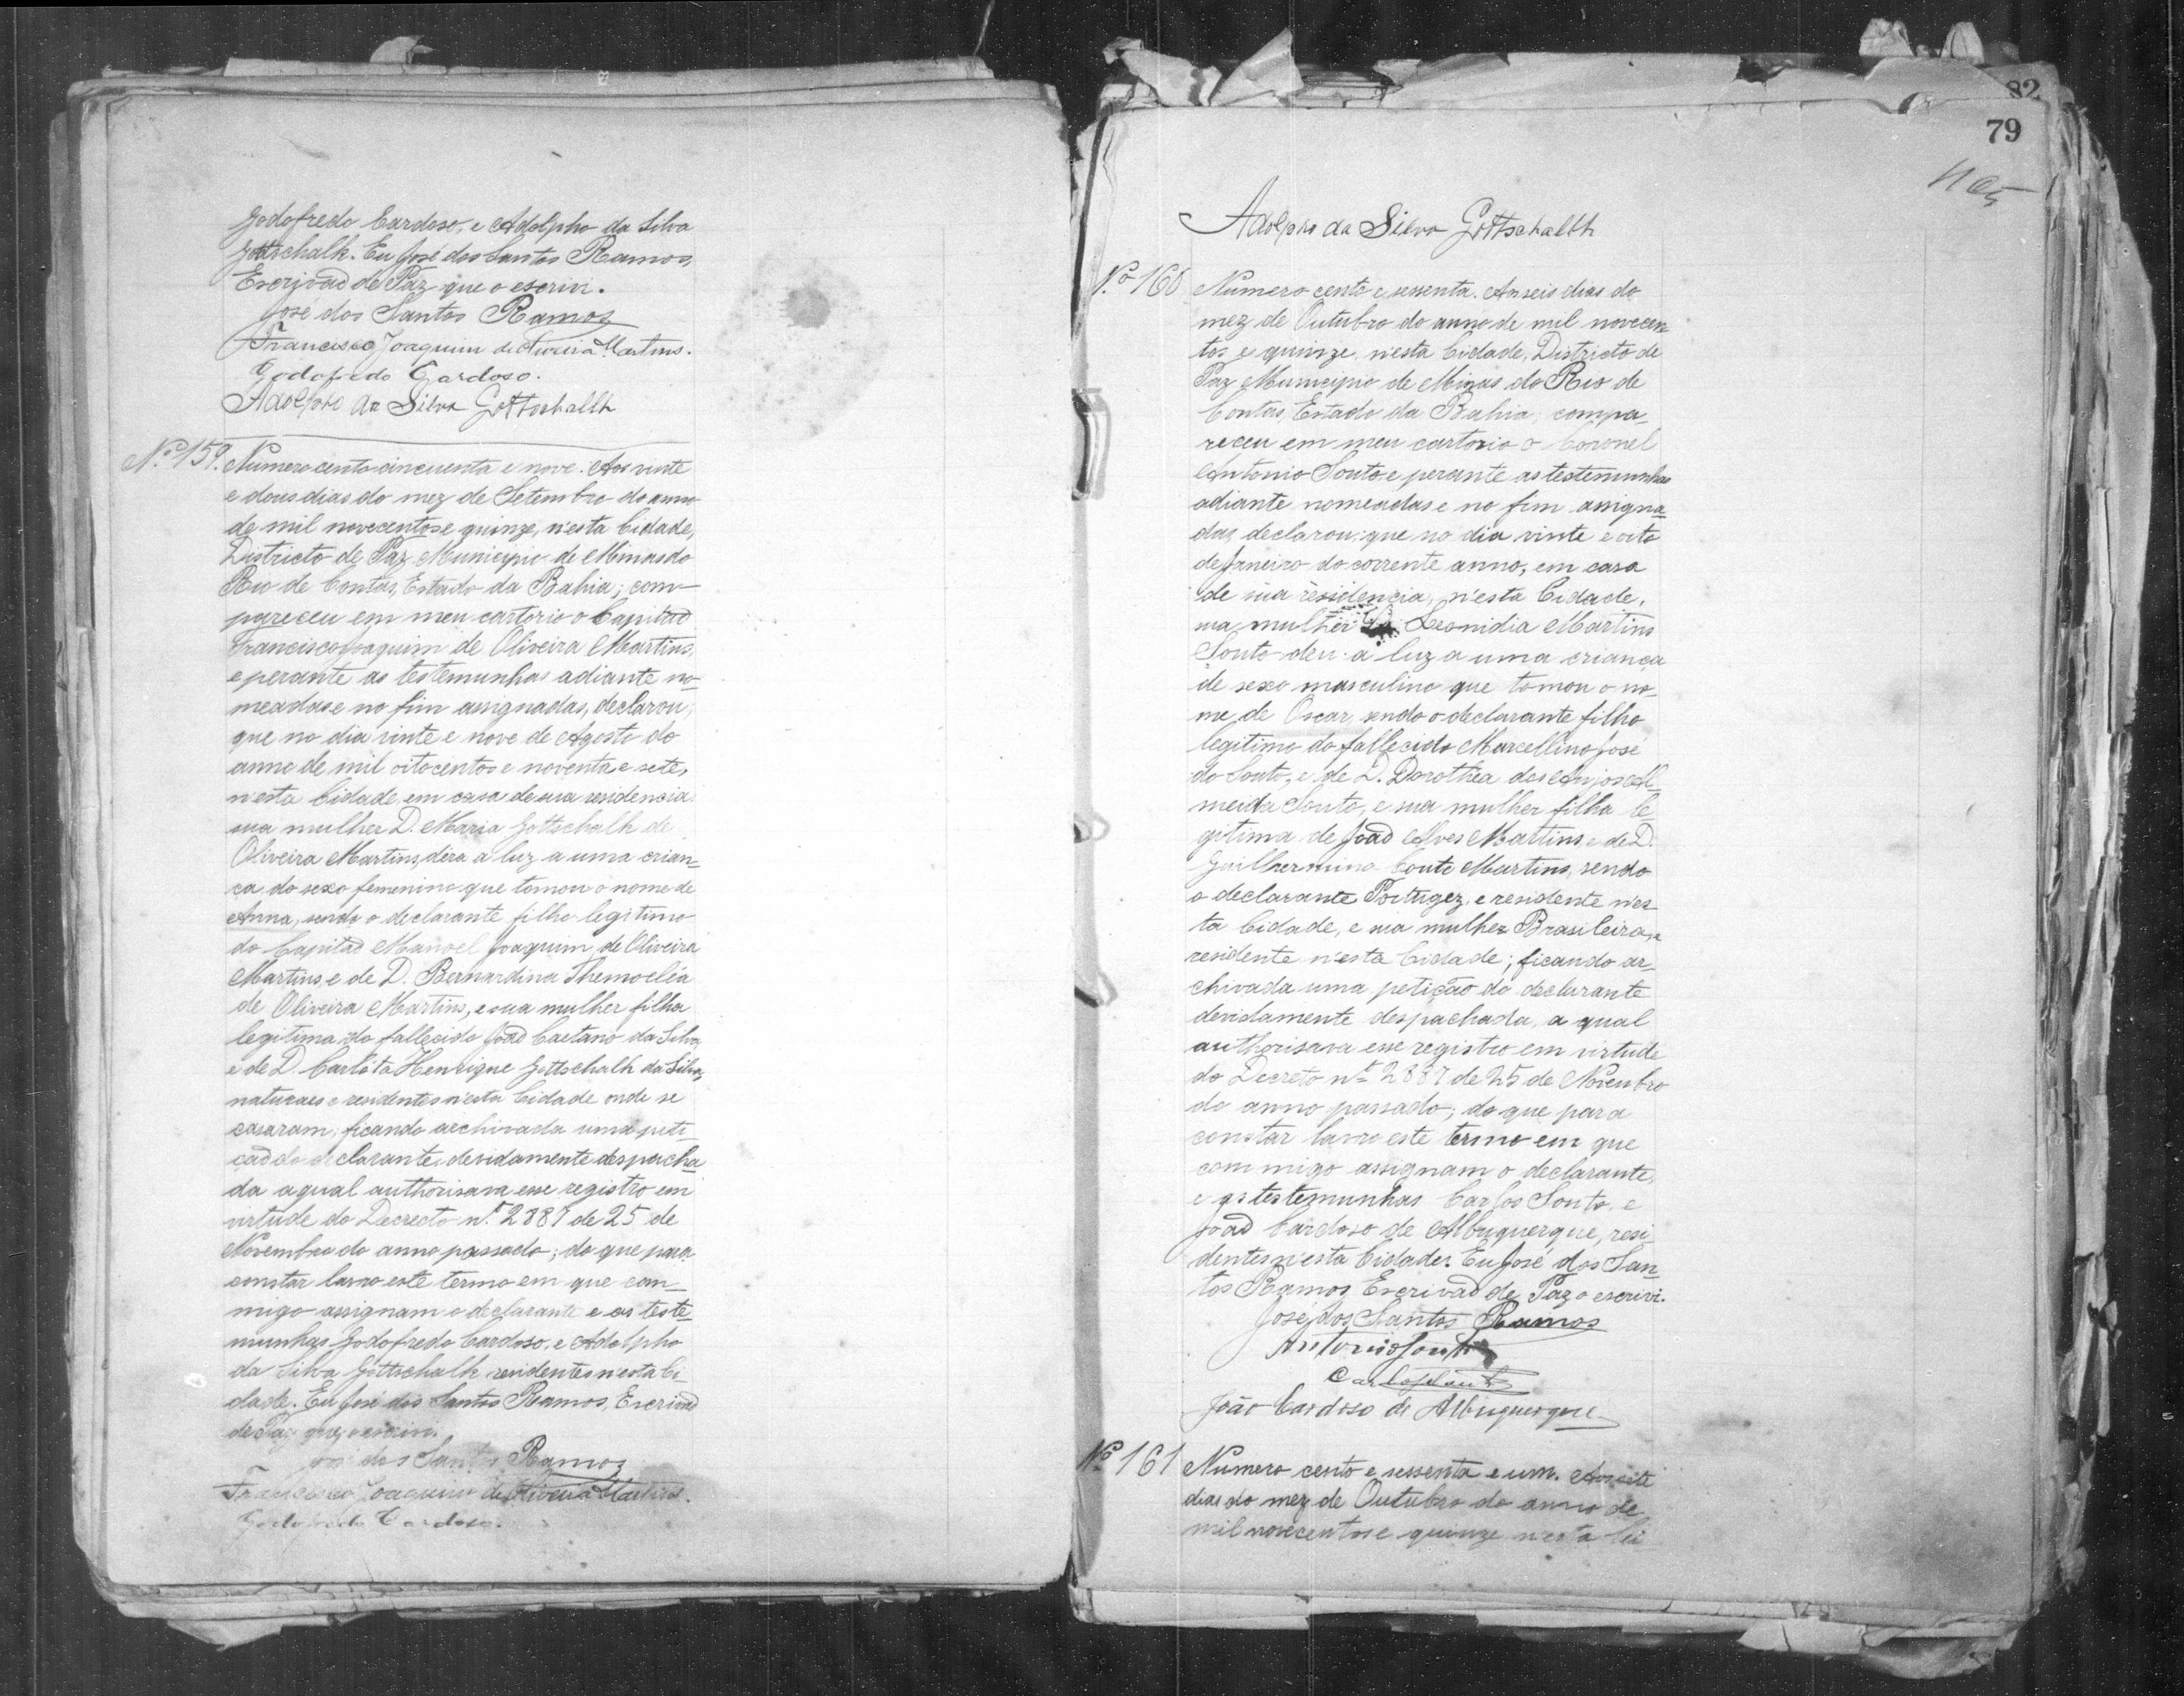 Godofredo Cardoso, e Adolpho da Silva
Gottschalk. Eu José dos Santos Ramos,
Escrivaõ de Paz que o escrivi.
José dos Santos Ramos
Francisco Joaquim de Oliveira Martins.
Godofredo Cardoso.
Adolpho da Silva Gottschallk
Nº 159. Numero cento cincuenta e nove. Aos vinte
e dous dias do mez de Setembro do anno
de mil novecentos e quinze, n'esta Cidade,
Districto de Paz Municipio de Minas do
Rio de Contas, Estado da Bahia; com-
pareceu em meu cartorio o Capitaõ
Francisco Joaquim de Oliveira Martins,
e perante as testemunhas adiante no-
meadas e no fim assignadas, declarou;
que no dia vinte e nove de Agosto do
anno de mil oitocentos e noventa e sete,
n'esta Cidade em casa de sua residencia
sua mulher D. Maria Gottschalk de
Oliveira Martins, déra a luz a uma crian-
ca do sexo femenino que tomou o nome de
Anna, sendo o declarante filho legitimo
do Capitaõ Manoel Joaquim de Oliveira
Martins e de D. Bernardina Themocléa
de Oliveira Martins, e sua mulher filha
legitima do fallecido Joaõ Caetano da Silva,
e de D. Carlóta Henrique Gottschalk da Silva,
naturaes e residentes n'esta Cidade onde se
casaram; ficando archivada uma peti-
caõ do declarante devidamente despacha
da a qual authorisava esse registro em
virtude do Decreto n.º 2887 de 25 de
Novembro do anno passado; do que para
constar lavro este termo em que com-
migo assignam o declarante e as teste-
munhas Godofredo Cardoso, e Adolpho
da Silva Gottschalk residentes n'esta Ci-
dade. Eu José dos Santos Ramos, Escrivaõ
de Paz que o escrivi.
José dos Santos Ramos
Francisco Joaquim de Oliveira Martins.
Godofredo Cardoso.
82
79
Adolpho da Silva Gottschallk
Nº 160 Numero cento e sessenta. Aos seis dias do
mez de Outubro do anno de mil novecen-
tos e quinze, n'esta Cidade, Districto de
Paz Municipio de Minas do Rio de
Contas, Estado da Bahia; compa-
receu em meu cartorio o Coronel
Antonio Souto e perante as testemunhas
adiante nomeadas e no fim assigna-
das, declarou: que no dia vinte e oito
de Janeiro do corrente anno, em casa
de sua residencia, n'esta Cidade,
sua mulher Leonidia Martins
Souto deu a luz a uma criança
de sexo masculino que tomou o no-
me de Oscar, sendo o declarante filho
legitimo do fallecido Marcellino José
do Souto, e de D. Dorothéa dos Anjos Al-
meida Souto, e sua mulher filha le-
gitima de Joaõ Alves Martins e de D.
Guilhermina Couto Martins, sendo
o declarante Portugez, e residente n'es-
ta Cidade, e sua mulher Brasileira, e
residente n'esta Cidade; ficando ar-
chivada uma petição do declarante
devidamente despachada, a qual
authorisava esse registro em virtude
do Decreto nº 2887 de 25 de Novembro
do anno passado; do que para
constar lavro este termo em que
commigo assignam o declarante,
e as testemunhas Carlos Souto, e
Joaõ Cardoso de Albuquerque, resi-
dentes n'esta Cidade. Eu José dos San-
tos Ramos, Escrivaõ de Paz o escrivi.
José dos Santos Ramos
Antonio Souto
Carlos Souto
João Cardoso de Albuquerque
Nº 161 Numero cento e sessenta e um. Aos sete
dias do mez de Outubro do anno de
mil novecentos e quinze n'esta Ci-